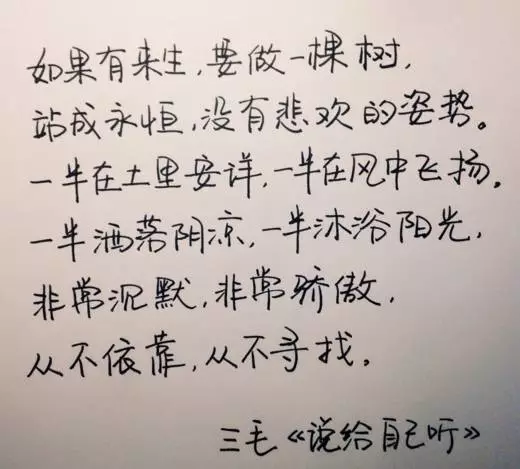 如果有来生,要做一棵树,
站成永恒,没有悲欢的姿势。
一半在土里安详,一半在风中飞扬,
一半洒落阴凉,一半沐浴阳光,
非常沉默,非常骄傲,
从不依靠,从不寻找。
三毛《说给自己听》